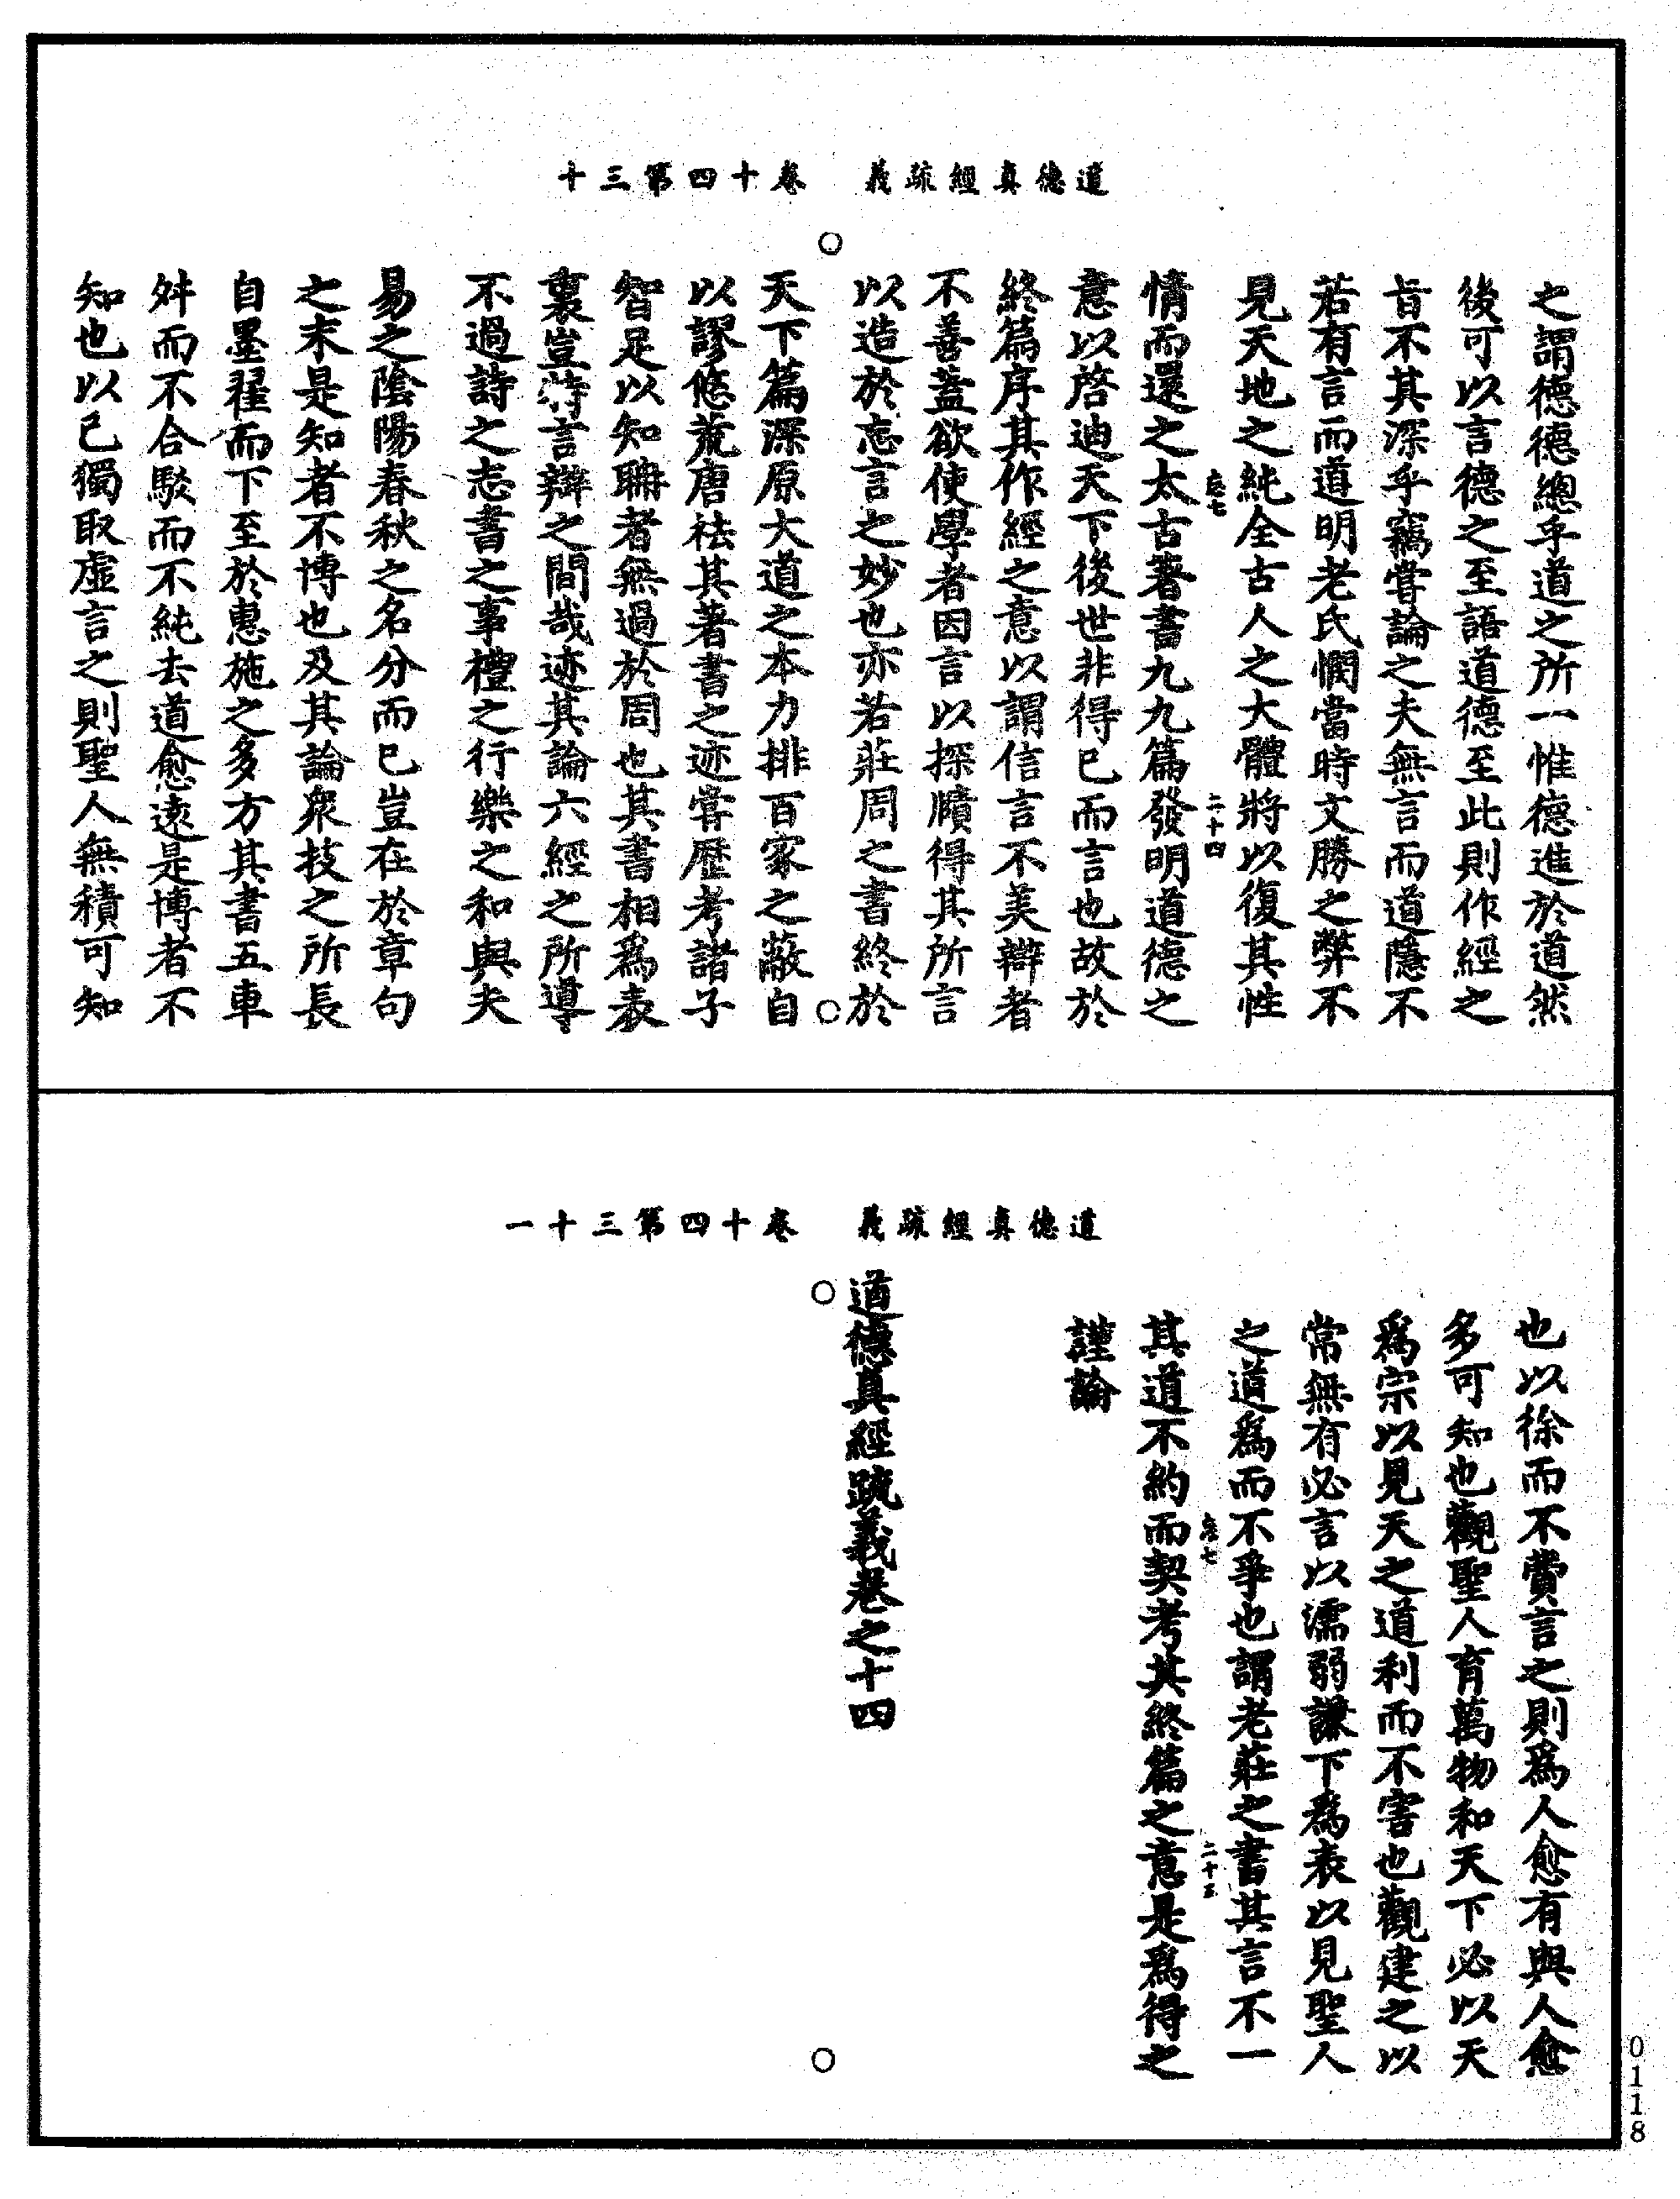 道德真經疏義　卷十四第三十
之謂德德總乎道之所一惟德進於道然
後可以言德之至語道德至此則作經之
旨不其深乎竊甞論之夫無言而道隱不
若有言而道明老氏憫當時文勝之弊不
見天地之純全古人之大體將以復其性
忘七　二十四
情而還之太古著書九九篇發明道德之
意以啓迪天下後世非得已而言也故於
終篇序其作經之意以謂信言不美辯者
不善蓋欲使學者因言以探賾得其所言
以造於忘言之妙也亦若莊周之書終於
天下篇深原大道之本力排百家之蔽自
以謬悠荒唐袪其著書之迹甞歷考諸子
智足以知聃者無過於周也其書相爲表
裏豈特言辯之間哉迹其論六經之所導
不過詩之志書之事禮之行樂之和與夫
易之陰陽春秋之名分而已豈在於章句
之末是知者不博也及其論衆技之所長
自墨翟而下至於惠施之多方其書五車
舛而不合駁而不純去道愈遠是博者不
知也以已獨取虛言之則聖人無積可知
道德真經疏義　卷十四第三十一
也以徐而不費言之則爲人愈有與人愈
多可知也觀聖人育萬物和天下必以天
爲宗以見天之道利而不害也觀建之以
常無有必言以濡弱謙下爲表以見聖人
之道爲而不爭也謂老莊之書其言不一
忘七　二十五
其道不約而契考其終篇之意是爲得之
謹論
道德真經疏義卷之十四
0118